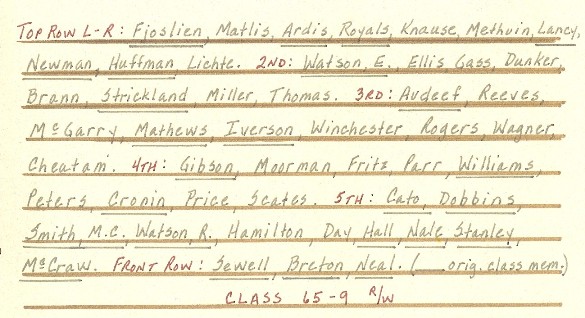 TOP ROW L-R: Fjoslien, Matlis, Ardis, Royals, Knause, Methvin, Lancy,
Newman, Huffman Lichte. 2ND: Watson, E., Ellis Gass, Dunker,
Brann, Strickland, Miller, Thomas. 3RD: Avdeef, Reeves,
McGarry, Mathews, Iverson, Winchester, Rogers, Wagner,
Cheatam. 4TH: Gibson, Moorman, Fritz, Parr, Williams,
Peters, Cronin, Price, Scates. 5TH: Cato, Dobbins,
Smith, M.C., Watson, R., Hamilton, Day, Hall, Nale, Stanley,
McCraw. FRONT ROW: Sewell, Breton, Neal. (___ orig. class mem.)
CLASS 65-9 R/W